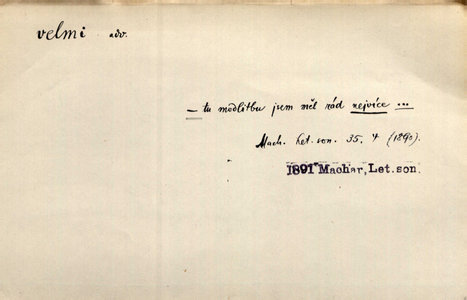 velmi adv.
— tu modlitbu jsem měl rád nejvíce ...
Mach. Let. son. 35. 4 (1890).
1891 Machar, Let. son.